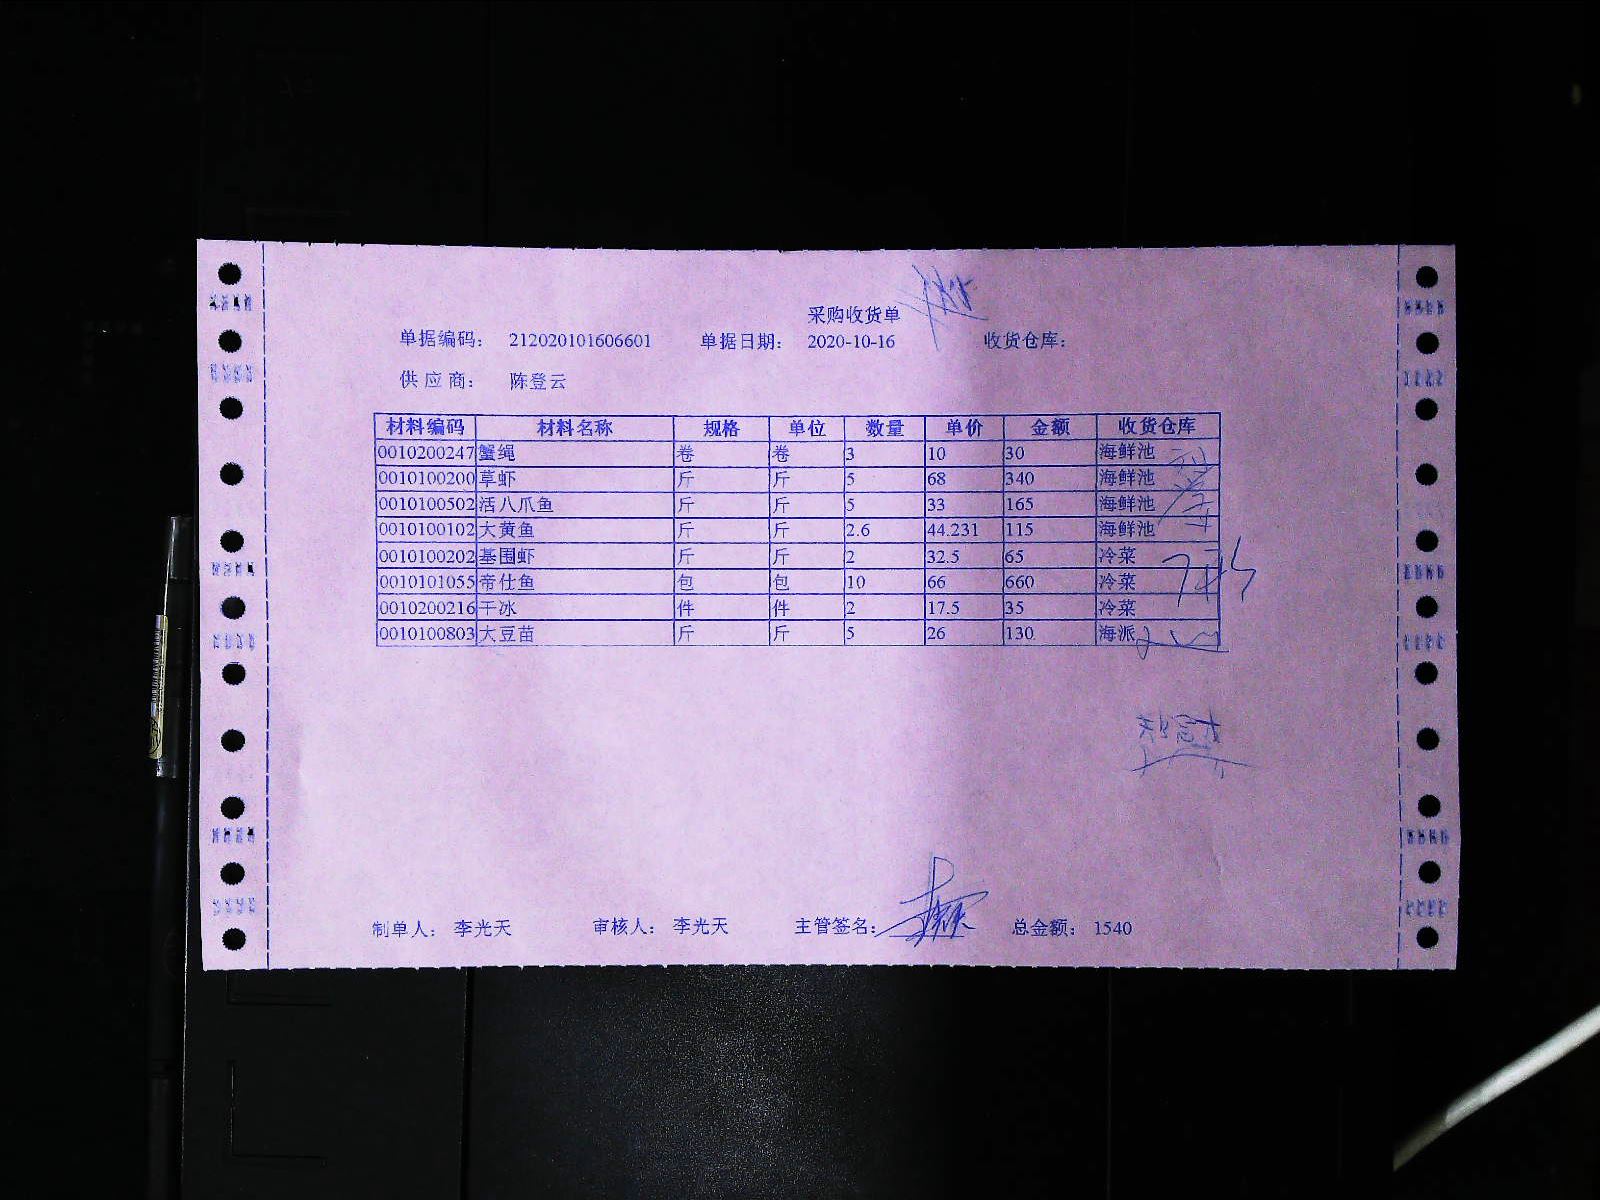 采购收货单
单据编码： 212020101606601 单据日期： 2020-10-16 收货仓库：
供 应 商： 陈登云
材料编码 材料名称 规格 单位 数量 单价 金额 收货仓库
0010200247 蟹绳 卷 卷 3 10 30 海鲜池
0010100200 草虾 斤 斤 5 68 340 海鲜池
0010100502 活八爪鱼 斤 斤 5 33 165 海鲜池
0010100102 大黄鱼 斤 斤 2.6 44.231 115 海鲜池
0010100202 基围虾 斤 斤 2 32.5 65 冷菜
0010101055 帝仕鱼 包 包 10 66 660 冷菜
0010200216 干冰 件 件 2 17.5 35 冷菜
0010100803 大豆苗 斤 斤 5 26 130 海派
制单人： 李光天 审核人： 李光天 主管签名： 总金额： 1540